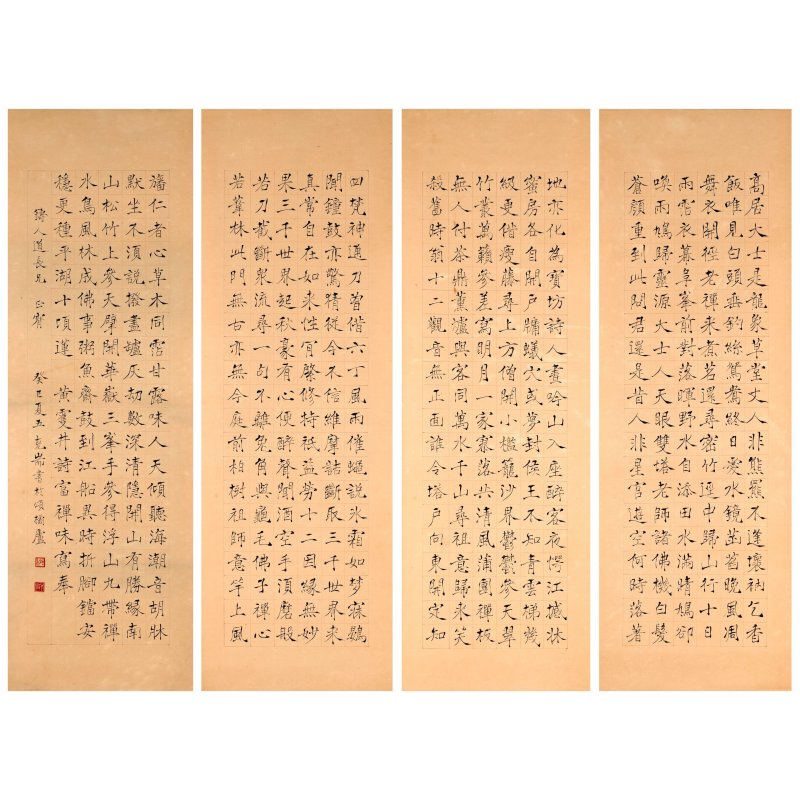 高居大士是龍象草堂丈人非熊羆不逢壞衲乞香
飯唯見白頭垂釣絲鴛鴦終日愛水鏡菡萏晚風凋
舞衣開徑老禪來煮茗還尋密竹逕中歸山行十日
雨霑衣幕阜峯前對落暉野水自添田水滿晴鳩卻
喚雨鳩歸靈源大士人天眼雙塔老師諸佛機白髮
蒼顏重到此問君還是昔人非星宮遊空何時落著
地亦化為寶坊詩人晝吟山入座醉客夜愕江撼牀
蜜房各自開戶牖蟻穴或夢封侯王不知青雲梯幾
級更借瘦藤尋上方僧開小檻籠沙界鬱鬱參天翠
竹叢萬籟參差寫明月一家寥落共清風蒲團禪板
無人付茶鼎薰爐與客同萬水千山尋祖意歸來笑
殺舊時翁十二觀音無正面誰令塔戶向東開定知
四梵神通力曾借六丁風雨催蠅說冰霜如夢寐鷃
聞鐘鼓亦驚猜從今不信維摩詰斷取三千世界來
真常自在如來性肎綮修持祗益勞十二因緣無妙
果三千世界起秋豪有心便醉聲聞酒空手須磨般
若刀截斷眾流尋一句不離兔角與龜毛佛子禪心
若葦林此門無古亦無今庭前柏樹祖師意竿上風
旛仁者心草木同霑甘露味人天傾聽海潮音胡牀
默坐不須說撥盡爐灰劫數深清隱開山有勝緣南
山松竹上參天擘開華嶽三峯手參得浮山九帶禪
水鳥風林成佛事粥魚齋鼓到江船異時折腳鐺安
穩更種平湖十頃蓮 黃雙井詩富禪味寫奉
人道長兄 正 癸巳夏五克耑書於頌橘廬